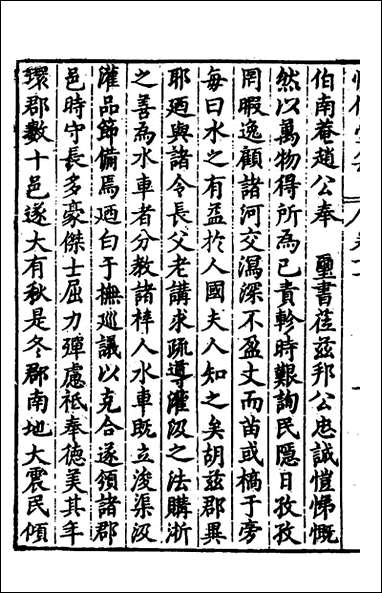 伯南菴趙公奉　璽書莅茲邦公忠誠愷悌慨
然以萬物得所為已責軫時艱詢民隱日孜孜
罔暇逸顧諸河交瀉深不盈丈而苗或槁于旁
每曰水之有益於人國夫人知之矣胡茲郡異
耶廼與諸令長父老講求疏導灌汲之法購浙
之善為水車者分教諸梓人水車既立浚渠汲
灌品節備焉廼白于撫巡議以克合遂領諸郡
邑時守長多豪傑士屈力殫慮祗奉德美其年
環郡數十邑遂大有秋是冬郡南地大震民傾